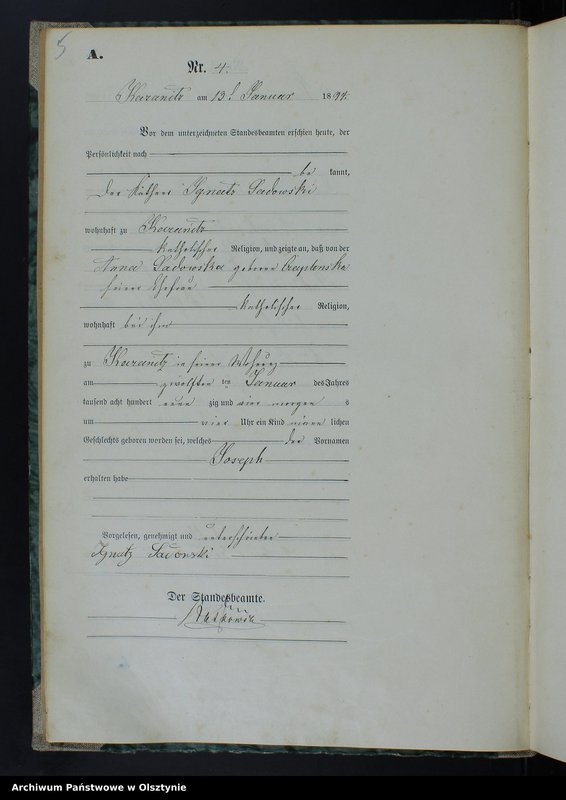 5
A.
Nr. 4.
am 13. Januar 1894.
Vor dem unterzeichneten Standesbeamten erschien heute, der
Persönlichkeit nach
be kannt,
der Käthner Ignatz Sadowski
wohnhaft zu
katholischer Religion, und zeigte an, daß von der
Anna Sadowska geborene
seiner Ehefrau
katholischer Religion,
wohnhaft bei ihm
zu in seiner Wohnung
am zwölften ten Januar des Jahres
tausend acht hundert neun zig und vier morgen s
um vier Uhr ein Kind männ lichen
Geschlechts geboren worden sei, welches der Vornamen
Joseph
erhalten habe
Vorgelesen, genehmigt und unterschrieben
Ignatz Sadowski
Der Standesbeamte.
Archiwum Państwowe w Olsztynie